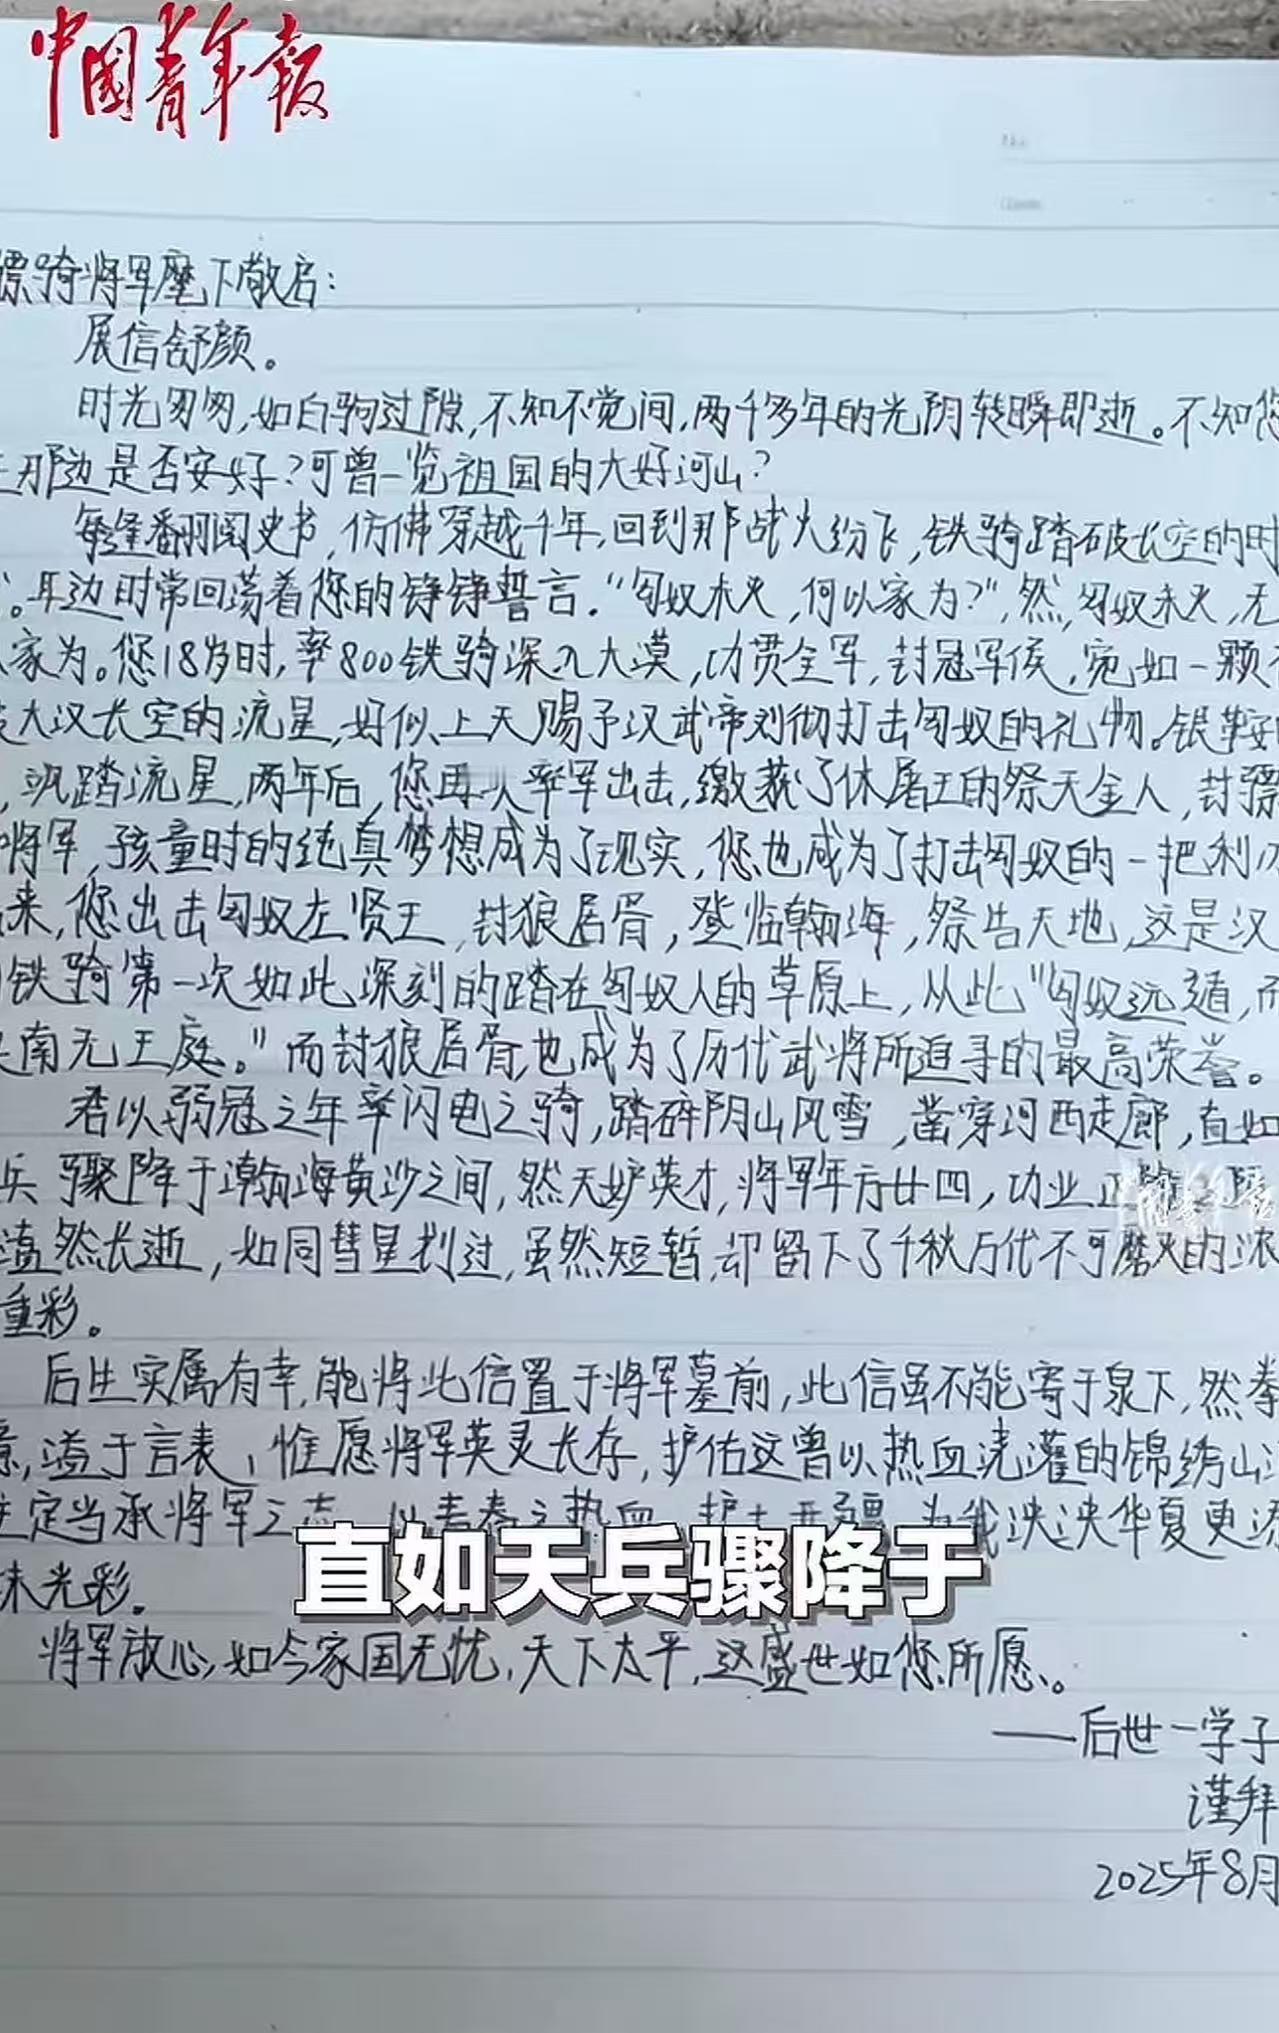 中国青年报
骠骑将军麾下敬启：
展信舒颜。
时光匆匆，如白驹过隙，不知不觉间，两千多年的光阴转瞬即逝。不知您
那边是否安好？可曾一览祖国的大好河山？
每逢翻阅史书，仿佛穿越千年，回到那战火纷飞，铁骑踏破长空的时
。耳边时常回荡着您的铮铮誓言。“匈奴未灭，何以家为？”，然，匈奴未灭，无
家为。您18岁时，率800铁骑深入大漠，功贯全军，封冠军侯，宛如一颗
大汉长空的流星，好似上天赐予汉武帝刘彻打击匈奴的礼物。银鞍
，飒踏流星，两年后，您再次率军出击，缴获了休屠王的祭天金人，封骠
将军，孩童时的纯真梦想成为了现实，您也成为了打击匈奴的一把利刃
来，您出击匈奴左贤王，封狼居胥，登临翰海，祭告天地，这是汉
铁骑第一次如此深刻的踏在匈奴人的草原上，从此“匈奴远遁，而
南无王庭。”而封狼居胥，也成为了历代武将所追寻的最高荣誉。
君以弱冠之年率闪电之骑，踏碎阴山风雪，凿穿河西走廊，直如
兵骤降于瀚海黄沙之间，然天妒英才，将军年方廿四，功业正
溘然长逝，如同彗星划过，虽然短暂，却留下了千秋万代不可磨灭的浓
重彩。
后生实属有幸，能将此信置于将军墓前，此信虽不能寄于泉下，然拳
意，溢于言表，惟愿将军英灵长存，护佑这曾以热血浇灌的锦绣山
定当承将军之志，以青春之热血，护土开疆，为我泱泱华夏更添
抹光彩。
直如天兵骤降于
将军放心，如今家国无忧，天下太平，这盛世如您所愿。
——后世一学子
谨拜
2025年8月